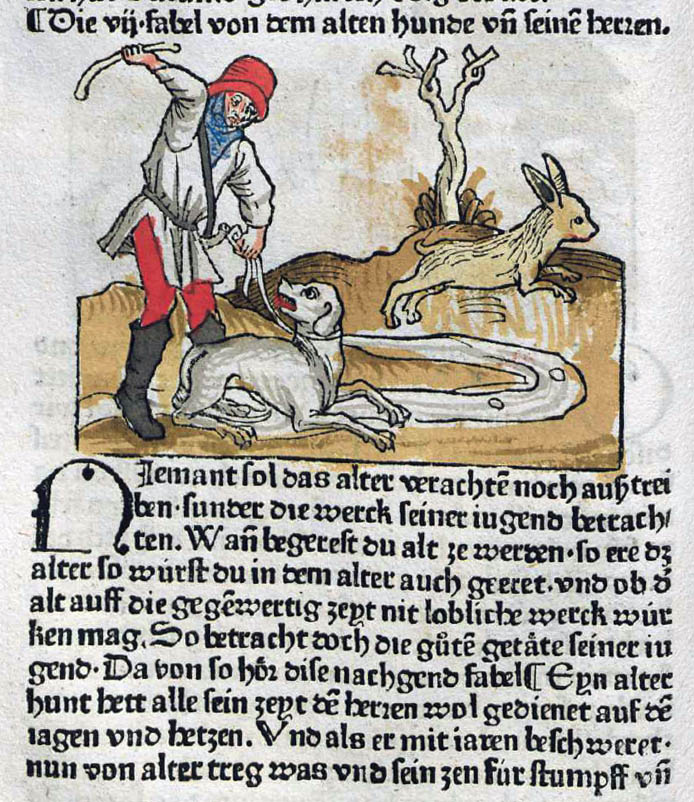 ¶Die vij·fabel von dem alten hunde vñ seinē herren.
NIemant sol das alter verachtē noch auſztrei
ben·sunder die werck seiner iugend betrach/
ten. Wañ begerest du alt ze werden·so ere dz
alter so würst du in dem alter auch geeret·vnd ob d̄
alt auff die gegēwertig zeyt nit lobliche werck wür
ken mag. So betracht doch die gůtē getåte seiner iu
gend· Da von so hôr dise nachgend fabel¶ Eyn alter
hunt hett alle sein zeyt dē herren wol gedienet auf dē
iagen vnd hetzen. Vnd als er mit iaren beschweret·
nun von alter treg was vnd sein zen für stumpff vñ